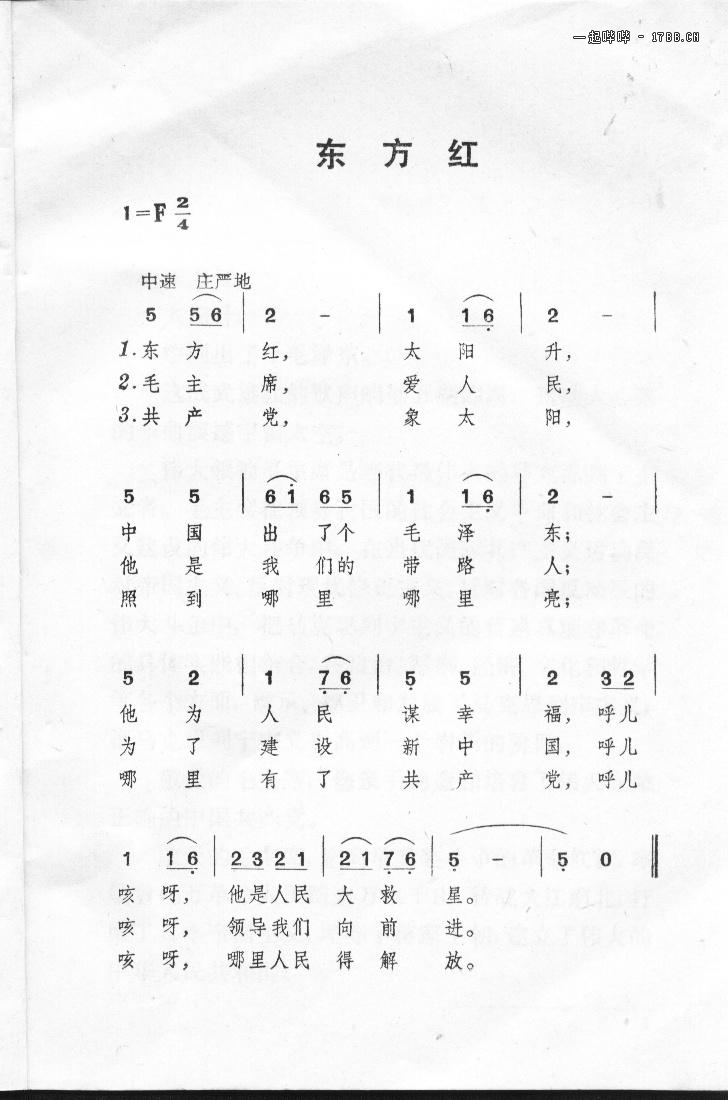 一起哗哗 - 17BB.CN
东方红
1=F 2/4
中速 庄严地
5 56 | 2 - | 1 16 | 2 - |
1.东方红，太阳升，
2.毛主席，爱人民，
3.共产党，象太阳，
5 5 | 6i 65 | 1 16 | 2 - |
中国出了个毛泽东；
他是我们的带路人；
照到哪里哪里亮；
5 2 | 1 76 | 5 5 | 2 32 |
他为人民谋幸福，呼儿
为了建设新中国，呼儿
哪里有了共产党，呼儿
1 16 | 23 21 | 21 76 | 5 - | 5 0 ‖
咳呀，他是人民大救星。
咳呀，领导我们向前进。
咳呀，哪里人民得解放。